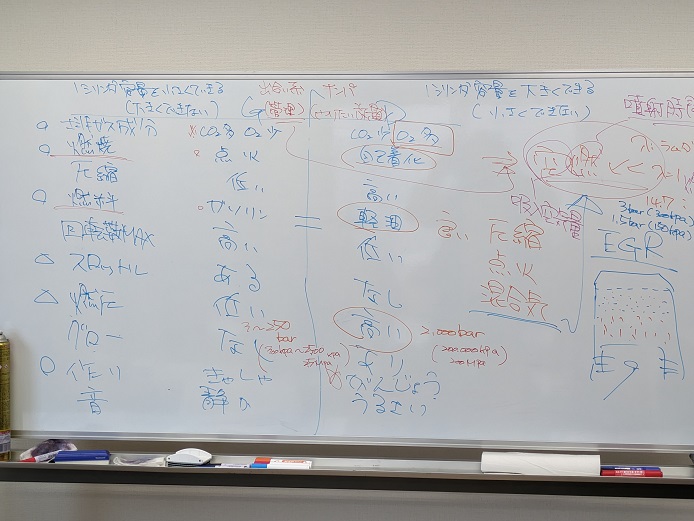 1シリンダ容量を小さくできる
(大きくできない)
1シリンダ容量を大きくできる
(小さくできない)
管理
噴射時
排ガス成分 CO2多 O2少 CO2少 O2多
燃焼 点火 自己着火
圧縮 低い 高い
燃料 ガソリン = 軽油
回転数MAX 高い 低い
スロットル ある なし
燃圧 低い 高い
3~250
bar
2,000bar
(200,000kPa)
200MPa
グロー なし あり
作り きゃしゃ がんじょう
音 静か うるさい
高い 圧縮
点火
混合気
吸入空気量
14.7:
3bar(300kPa)
1.5bar(150kPa)
EGR